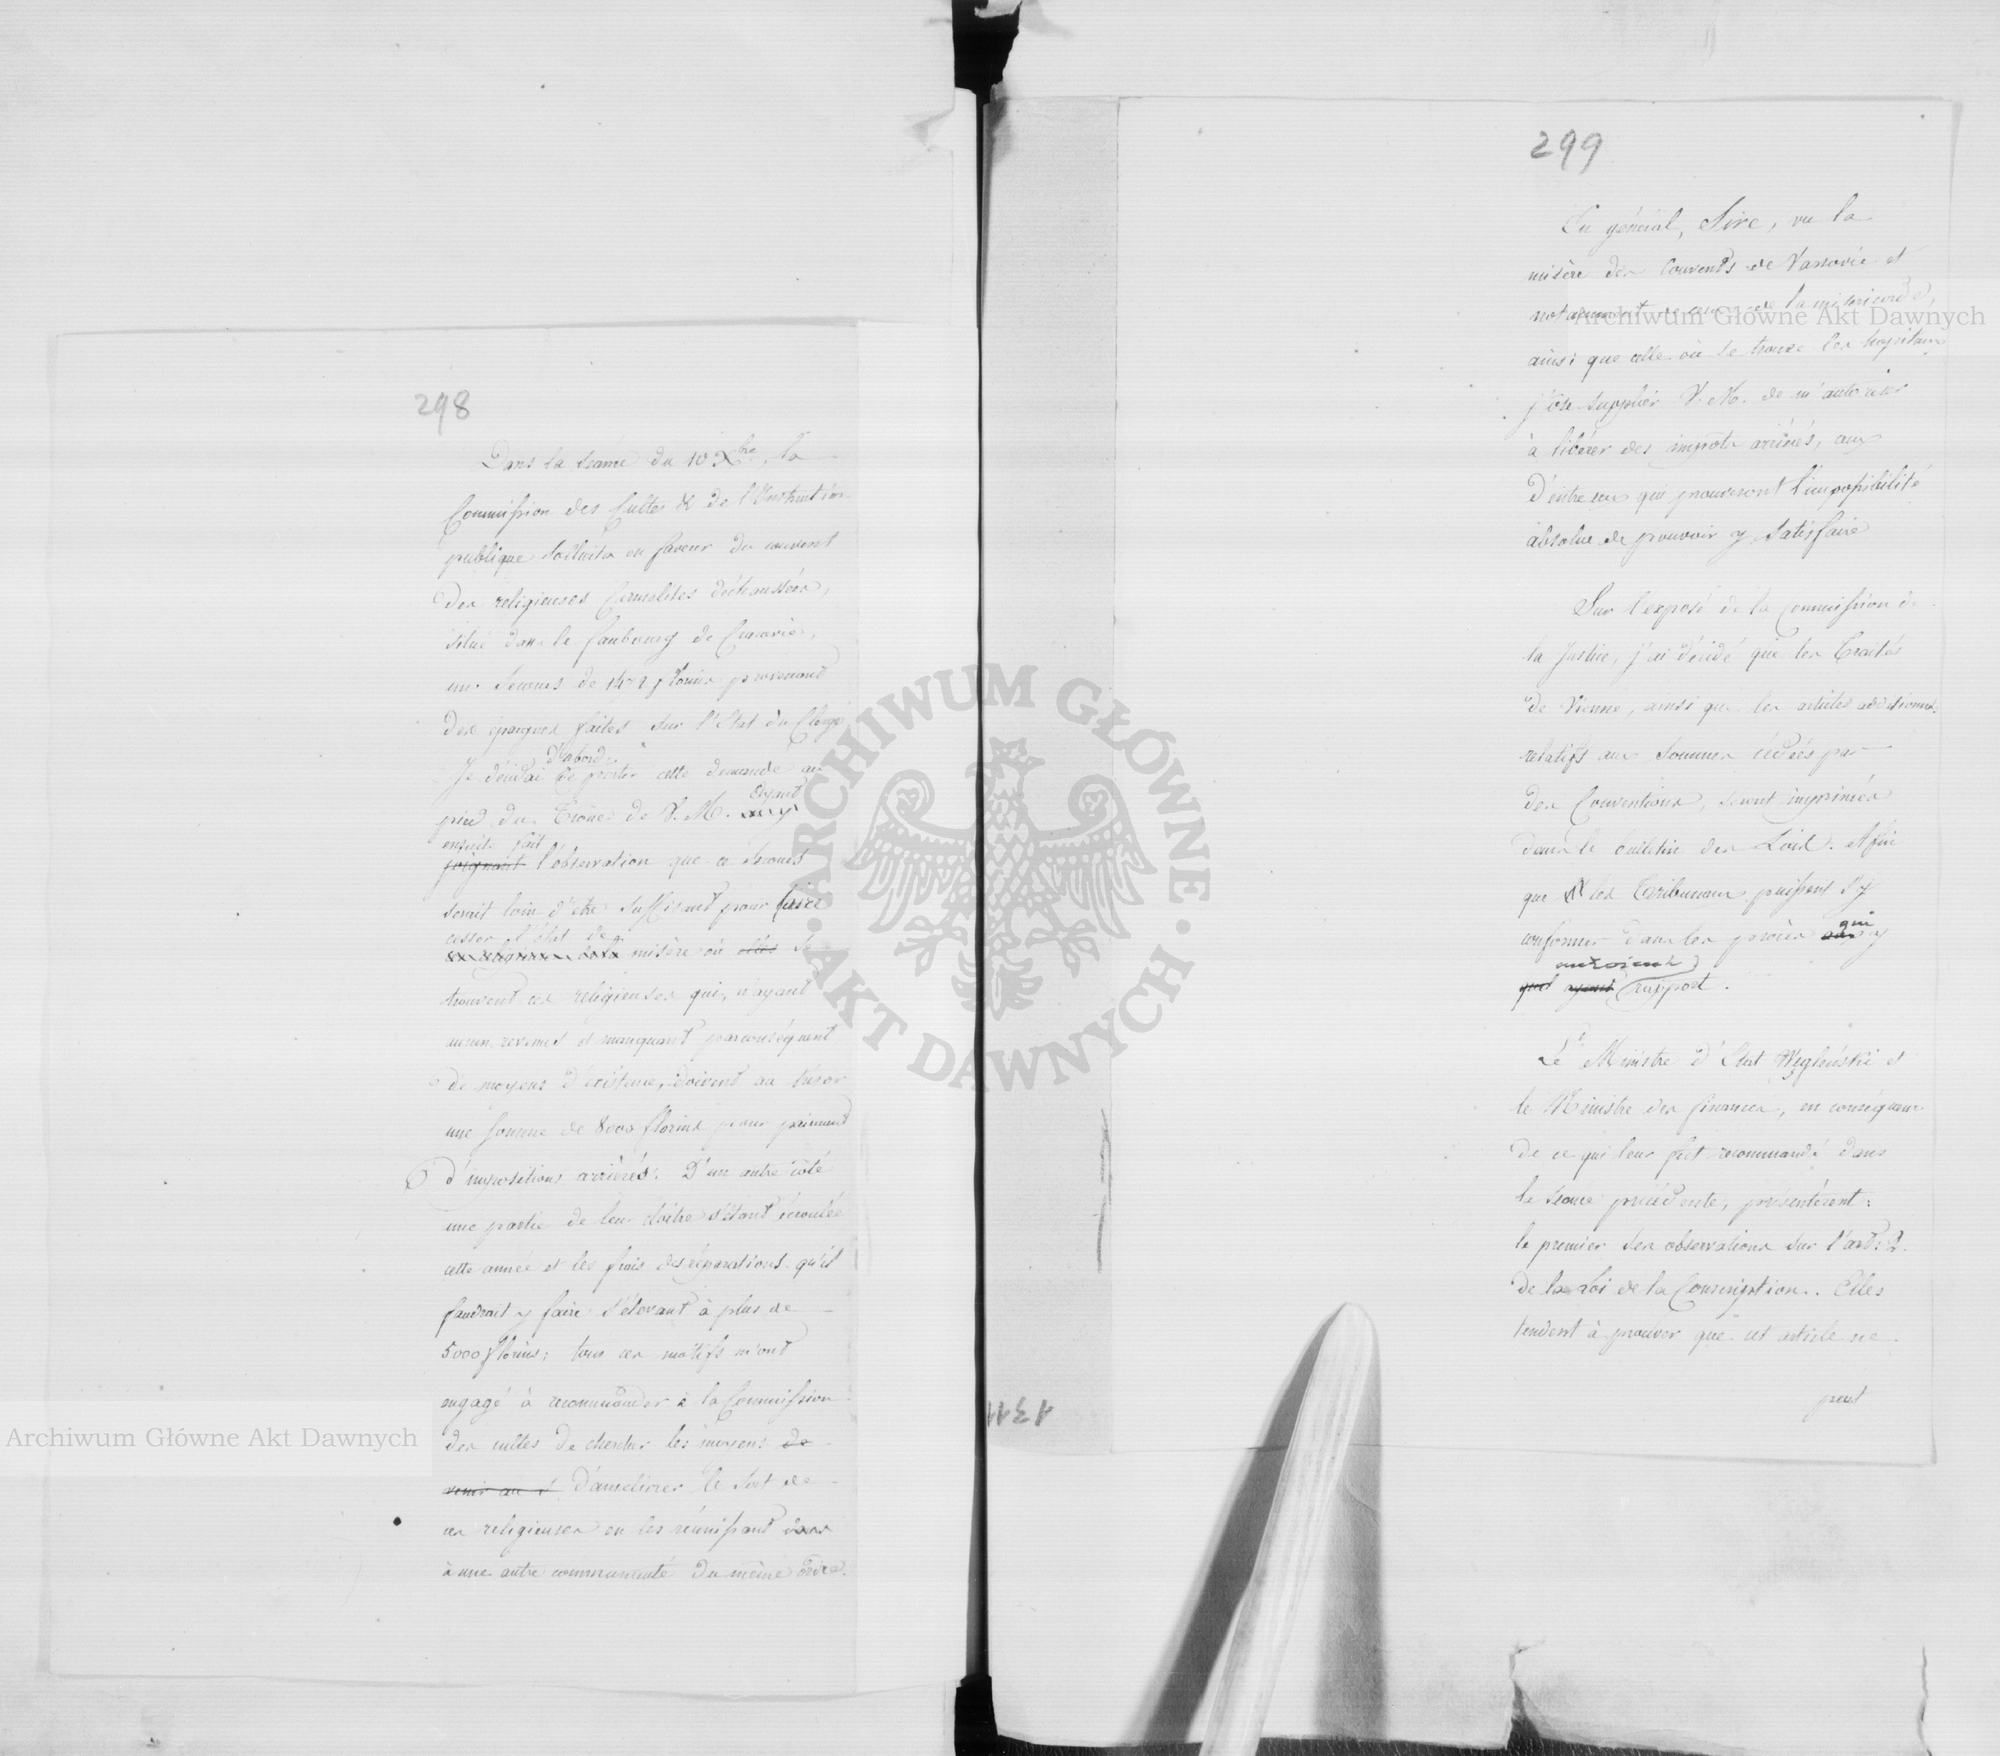 298
Dans la séance du 10 Xbre, la
Commission des Cultes & de l'Instruction
publique sollicita en faveur du couvent
des religieuses Carmelites déchaussées,
situé dans le faubourg de Cracovie,
un secours de florins provenant
des épargnes faites sur l'Etat du Clergé
d'abord
Je décidai de porter cette demande au
ayant
pied du Trône de V. M.
ensuite fait
joignant l'observation que ce secours
serait loin d'etre suffisant pour faire
cesser l'état de
misère où elles se
trouvent ces religieuses qui, n'ayant
aucun revenus et manquant parconséquent
de moyens d'existence, doivent au trésor
une somme de 8000 florins pour paiement
d'impositions arrièrés. D'un autre côté
une partie de leur cloitre s'étant écroulée
cette année et les frais des réparations qu'il
faudrait y faire s'élevant à plus de
5000 florins; tous ces motifs m'ont
engagé à recommander à la Commission
des cultes de chercher les moyens de
venir au s d'améliorer le sort de
ces religieuses en les réunissant dans
à une autre communauté du même ordre.
299
En général, Sire, vu la
misère des Couvents de Varsovie et
notamment de ceux de la misericorde,
ainsi que celle où se trouve les hopitaux
j'ose supplier V. M. de m'autoriser
à libérer des impots arriérés, ceux
d'entre eux qui prouveront l'impossibilité
absolue de pouvoir y satisfaire
Sur l'exposé de la Commission de
la Justice, j'ai décidé que les Traités
de Vienne, ainsi que les articles additionnels
relatifs aux sommes cédées par
des Conventions, seront imprimés
dans le bulletin des Loix. Afin
que les Tribunaux puissent s'y
qui
conformer dans les procès y
auroient
quel ayant rapport.
Le Ministre d'Etat Węgleński et
le Ministre des finances, en conséquence
de ce qui leur fut recommandé dans
la séance précédente, présentèrent:
le premier ses observations sur l'art: 2.
de la Loi de la Conscription. Elles
tendent à prouver que cet article ne
peut
1311
Archiwum Główne Akt Dawnych
Archiwum Główne Akt Dawnych
· ARCHIWUM GŁÓWNE · AKT DAWNYCH